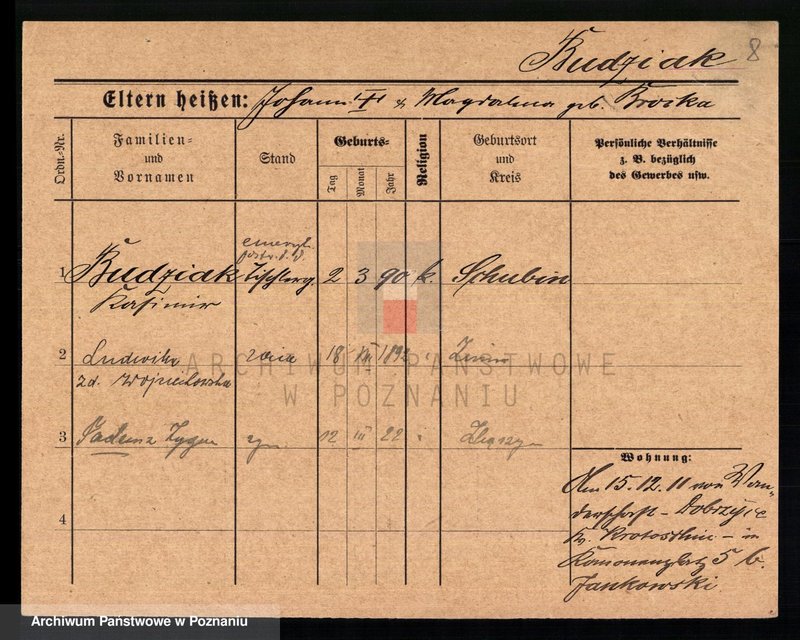 Budziak 8
Eltern heißen: Johann & Magdalena geb. Broska
Ordn.-Nr.
Familien- und Vornamen
Stand
Geburts-
Tag
Monat
Jahr
Religion
Geburtsort und Kreis
Persönliche Verhältnisse z. B. bezüglich des Gewerbes usw.
1 Budziak Tischlerg. 2 3 90 k. Schubin
Kasimir
2 Ludwika 18 1892
zd. Wojciechowska
3 12 III 22
Wohnung:
Am 15.12.11 von Wan-
derschaft - Dobrzyce
Kr. Krotoschin - in
Kanonenplatz 5 b.
Jankowski
4
ARCHIWUM PAŃSTWOWE
W POZNANIU
Archiwum Państwowe w Poznaniu